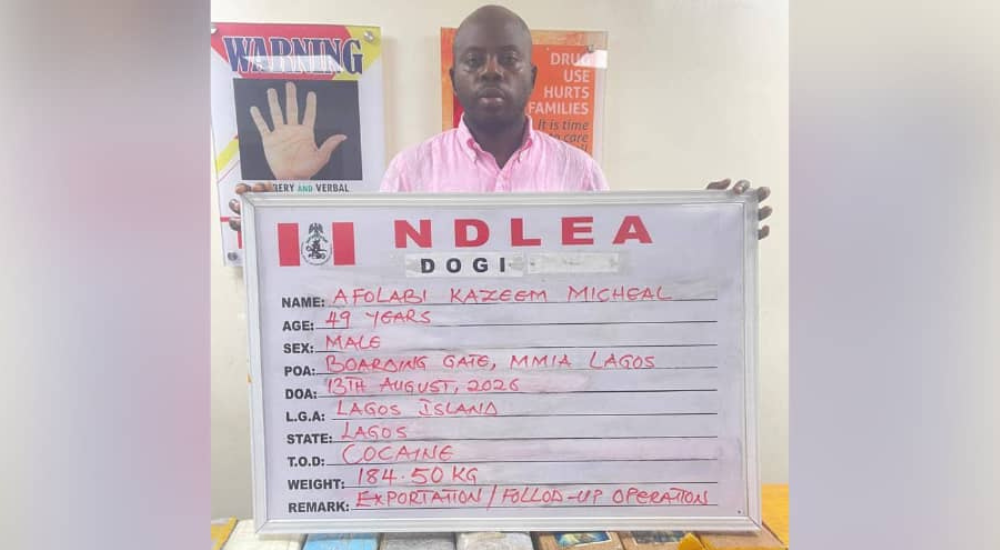 WARNING
ERY AND VERBAL
DRUG
USE
HURTS
FAMILIES
It is time
to care
NDLEA
DOGI
NAME: AFOLABI KAZEEM MICHEAL
AGE: 49 YEARS
SEX: MALE
POA: BOARDING GATE, MMIA LAGOS
DOA: 13TH AUGUST, 2026
L.G.A: LAGOS ISLAND
STATE: LAGOS
T.O.D: COCAINE
WEIGHT: 184.50 KG
REMARK: EXPORTATION / FOLLOD-UP OPERATION